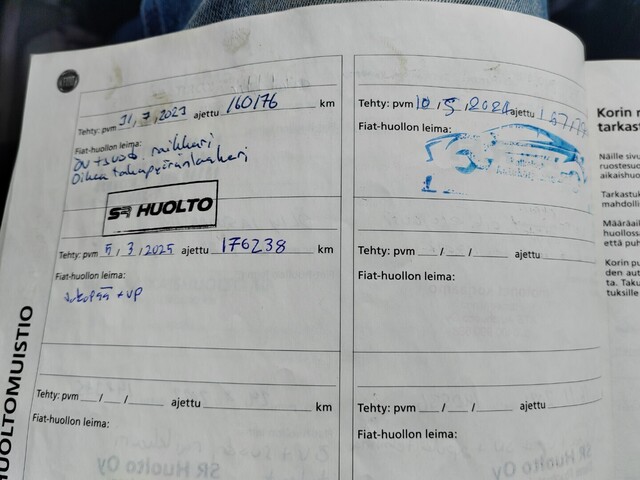 Tehty: pvm 31, 7, 2023 ajettu 160176 km
Fiat-huollon leima:
Öv + suod. raikkari
Oikea takapyöränlaakeri
SR HUOLTO
Tehty: pvm 5, 3, 2025 ajettu 176238 km
Fiat-huollon leima:
+ vp
Tehty: pvm / / ajettu km
Fiat-huollon leima:
Tehty: pvm 10, 5, 2024 ajettu
Fiat-huollon leima:
Tehty: pvm / / ajettu
Fiat-huollon leima:
Tehty: pvm / / ajettu
Fiat-huollon leima:
HUOLTOMUISTIO
Korin
tarkas
Näille sivu
ruostesuo
aikaishuo
Tarkastuk
mahdolli
Määräail
huolloss
että puh
Korin pu
den aut
ta. Taku
tuksille
SR Huolto Oy
SR Huolto Oy